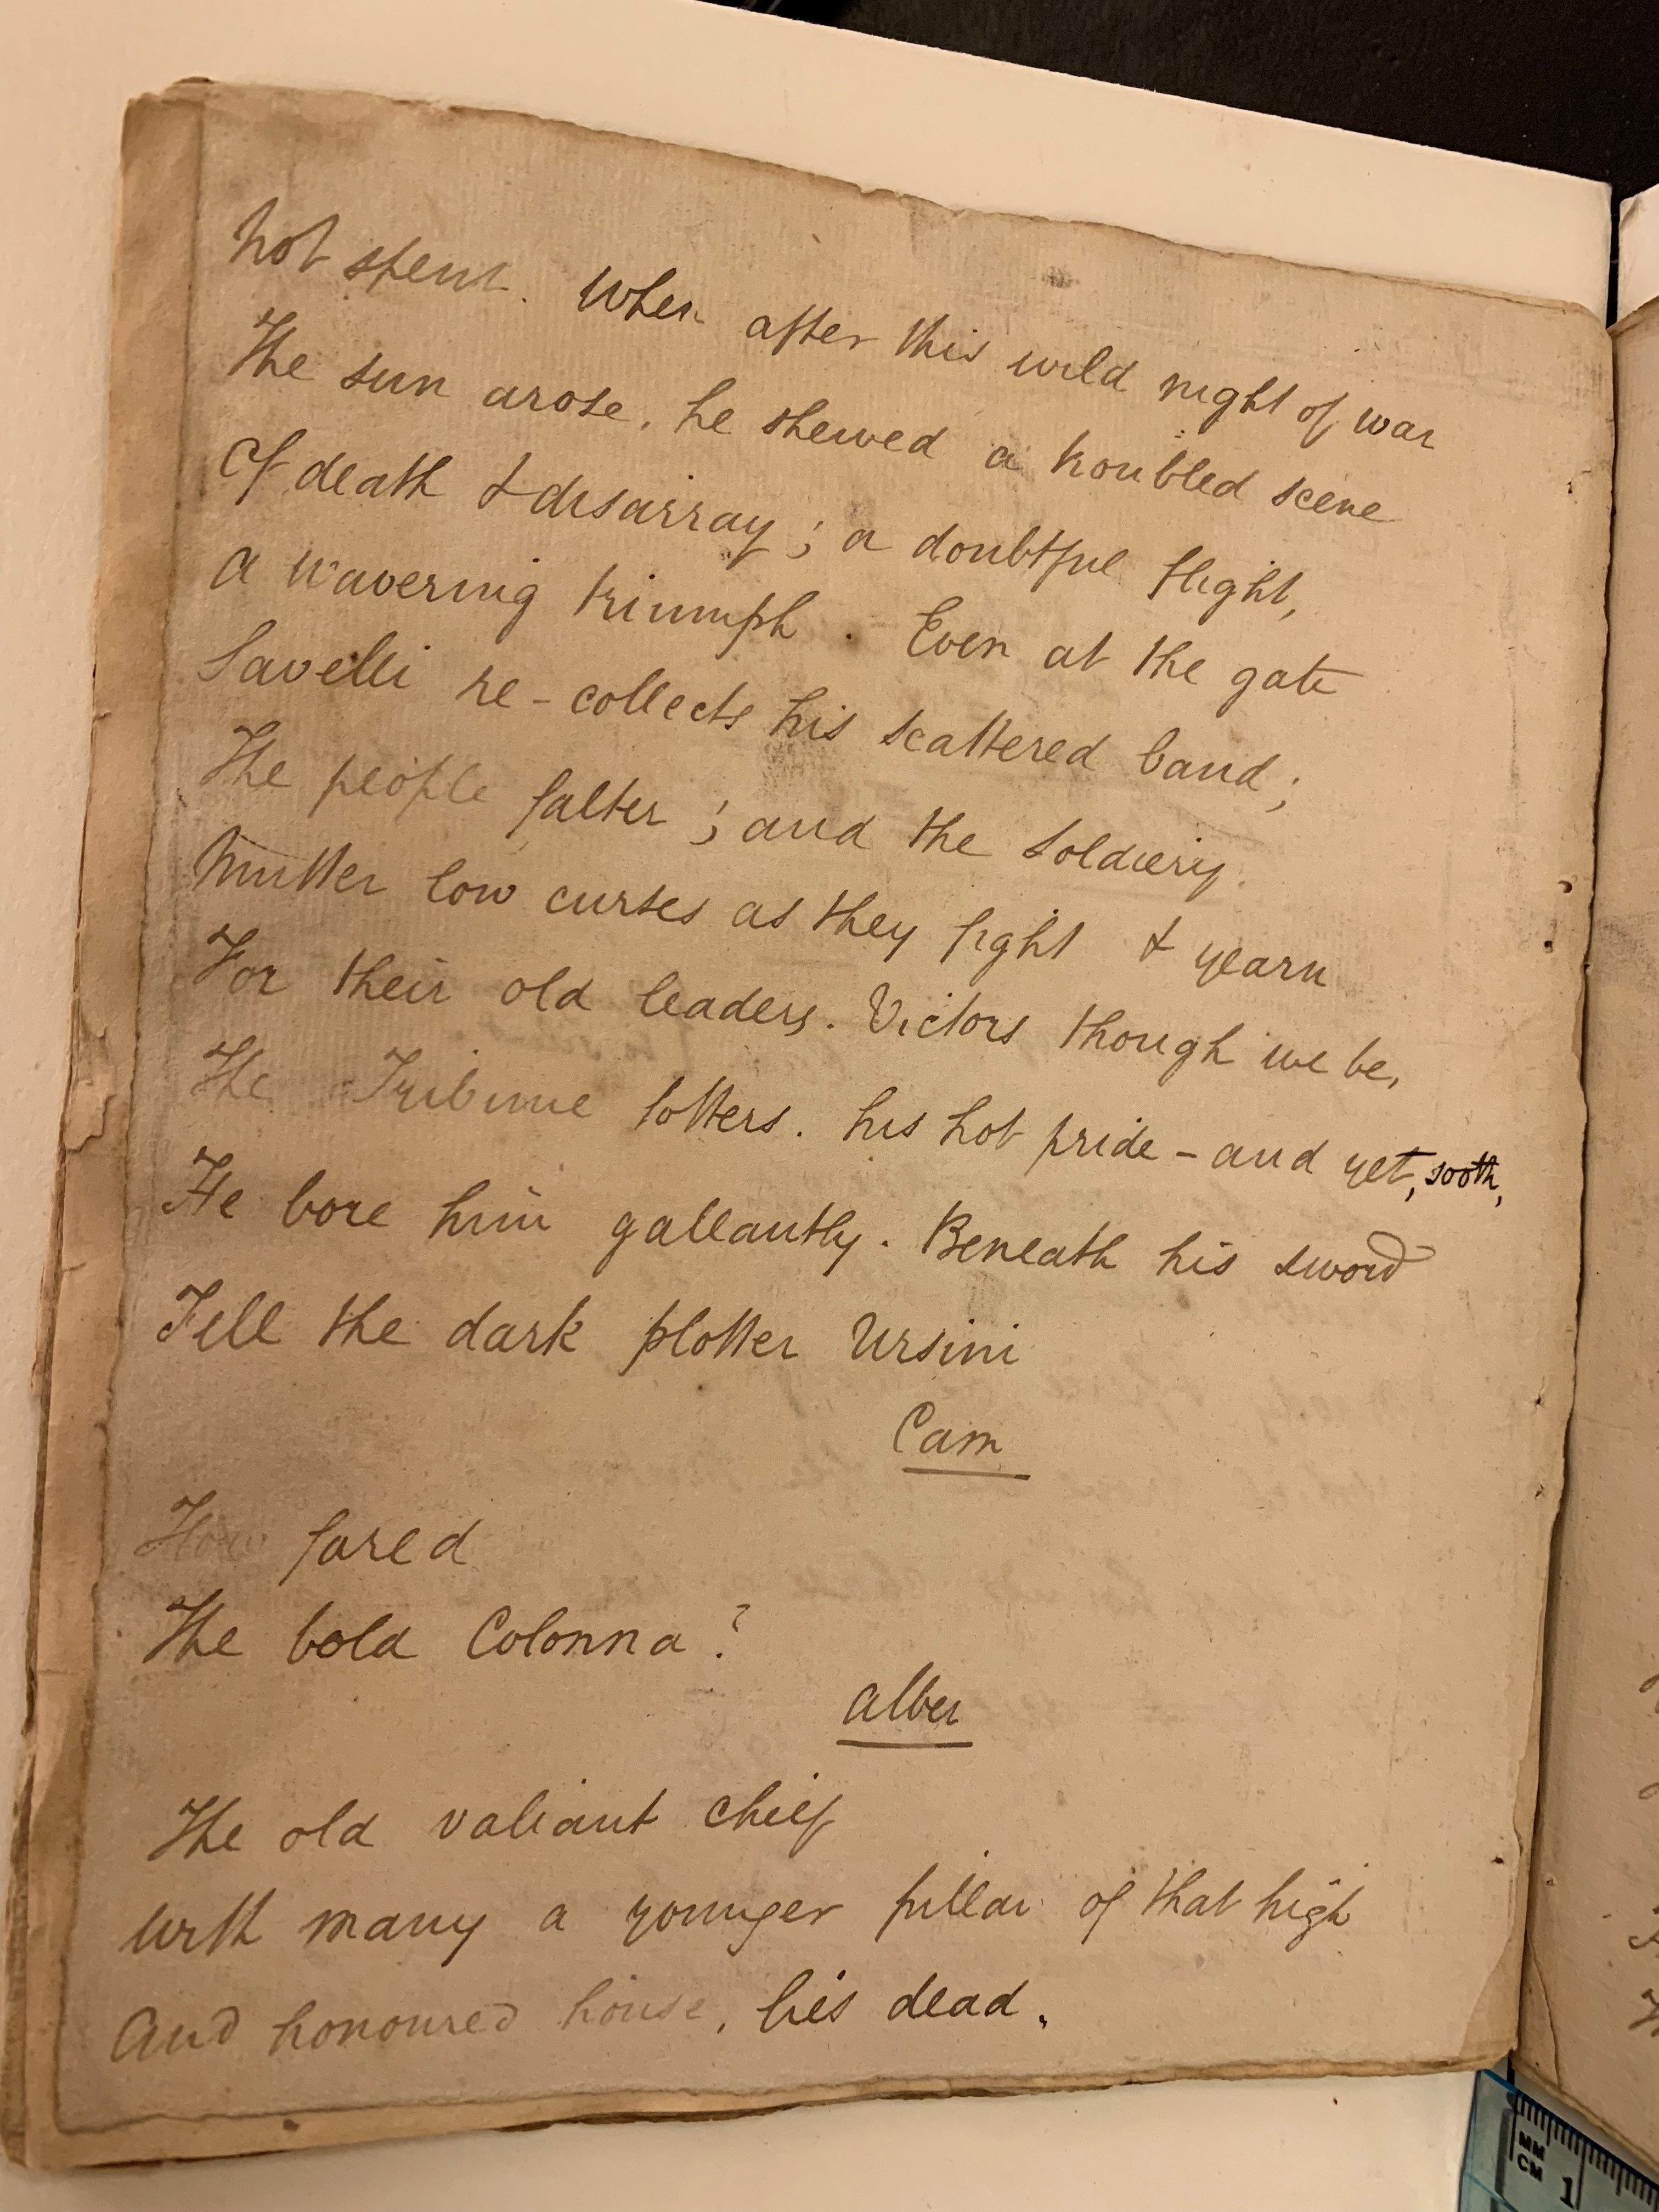 Not spent. When after this wild night of war
The sun arose, he shewed a troubled scene
Of death & disarray; a doubtful flight,
A wavering triumph. Even at the gate
Savelli re-collects his scattered band;
The people falter; and the soldiery
Mutter low curses as they fight & yearn
For their old leaders. Victors though we be,
The Tribune totters. his hot pride - and yet, sooth,
He bore him gallantly. Beneath his sword
Fell the dark plotter Ursini
Cam
How fared
The bold Colonna?
Alber
The old valiant chief
With many a younger pillar of that high
And honoured house, lies dead.
MM
CM 1